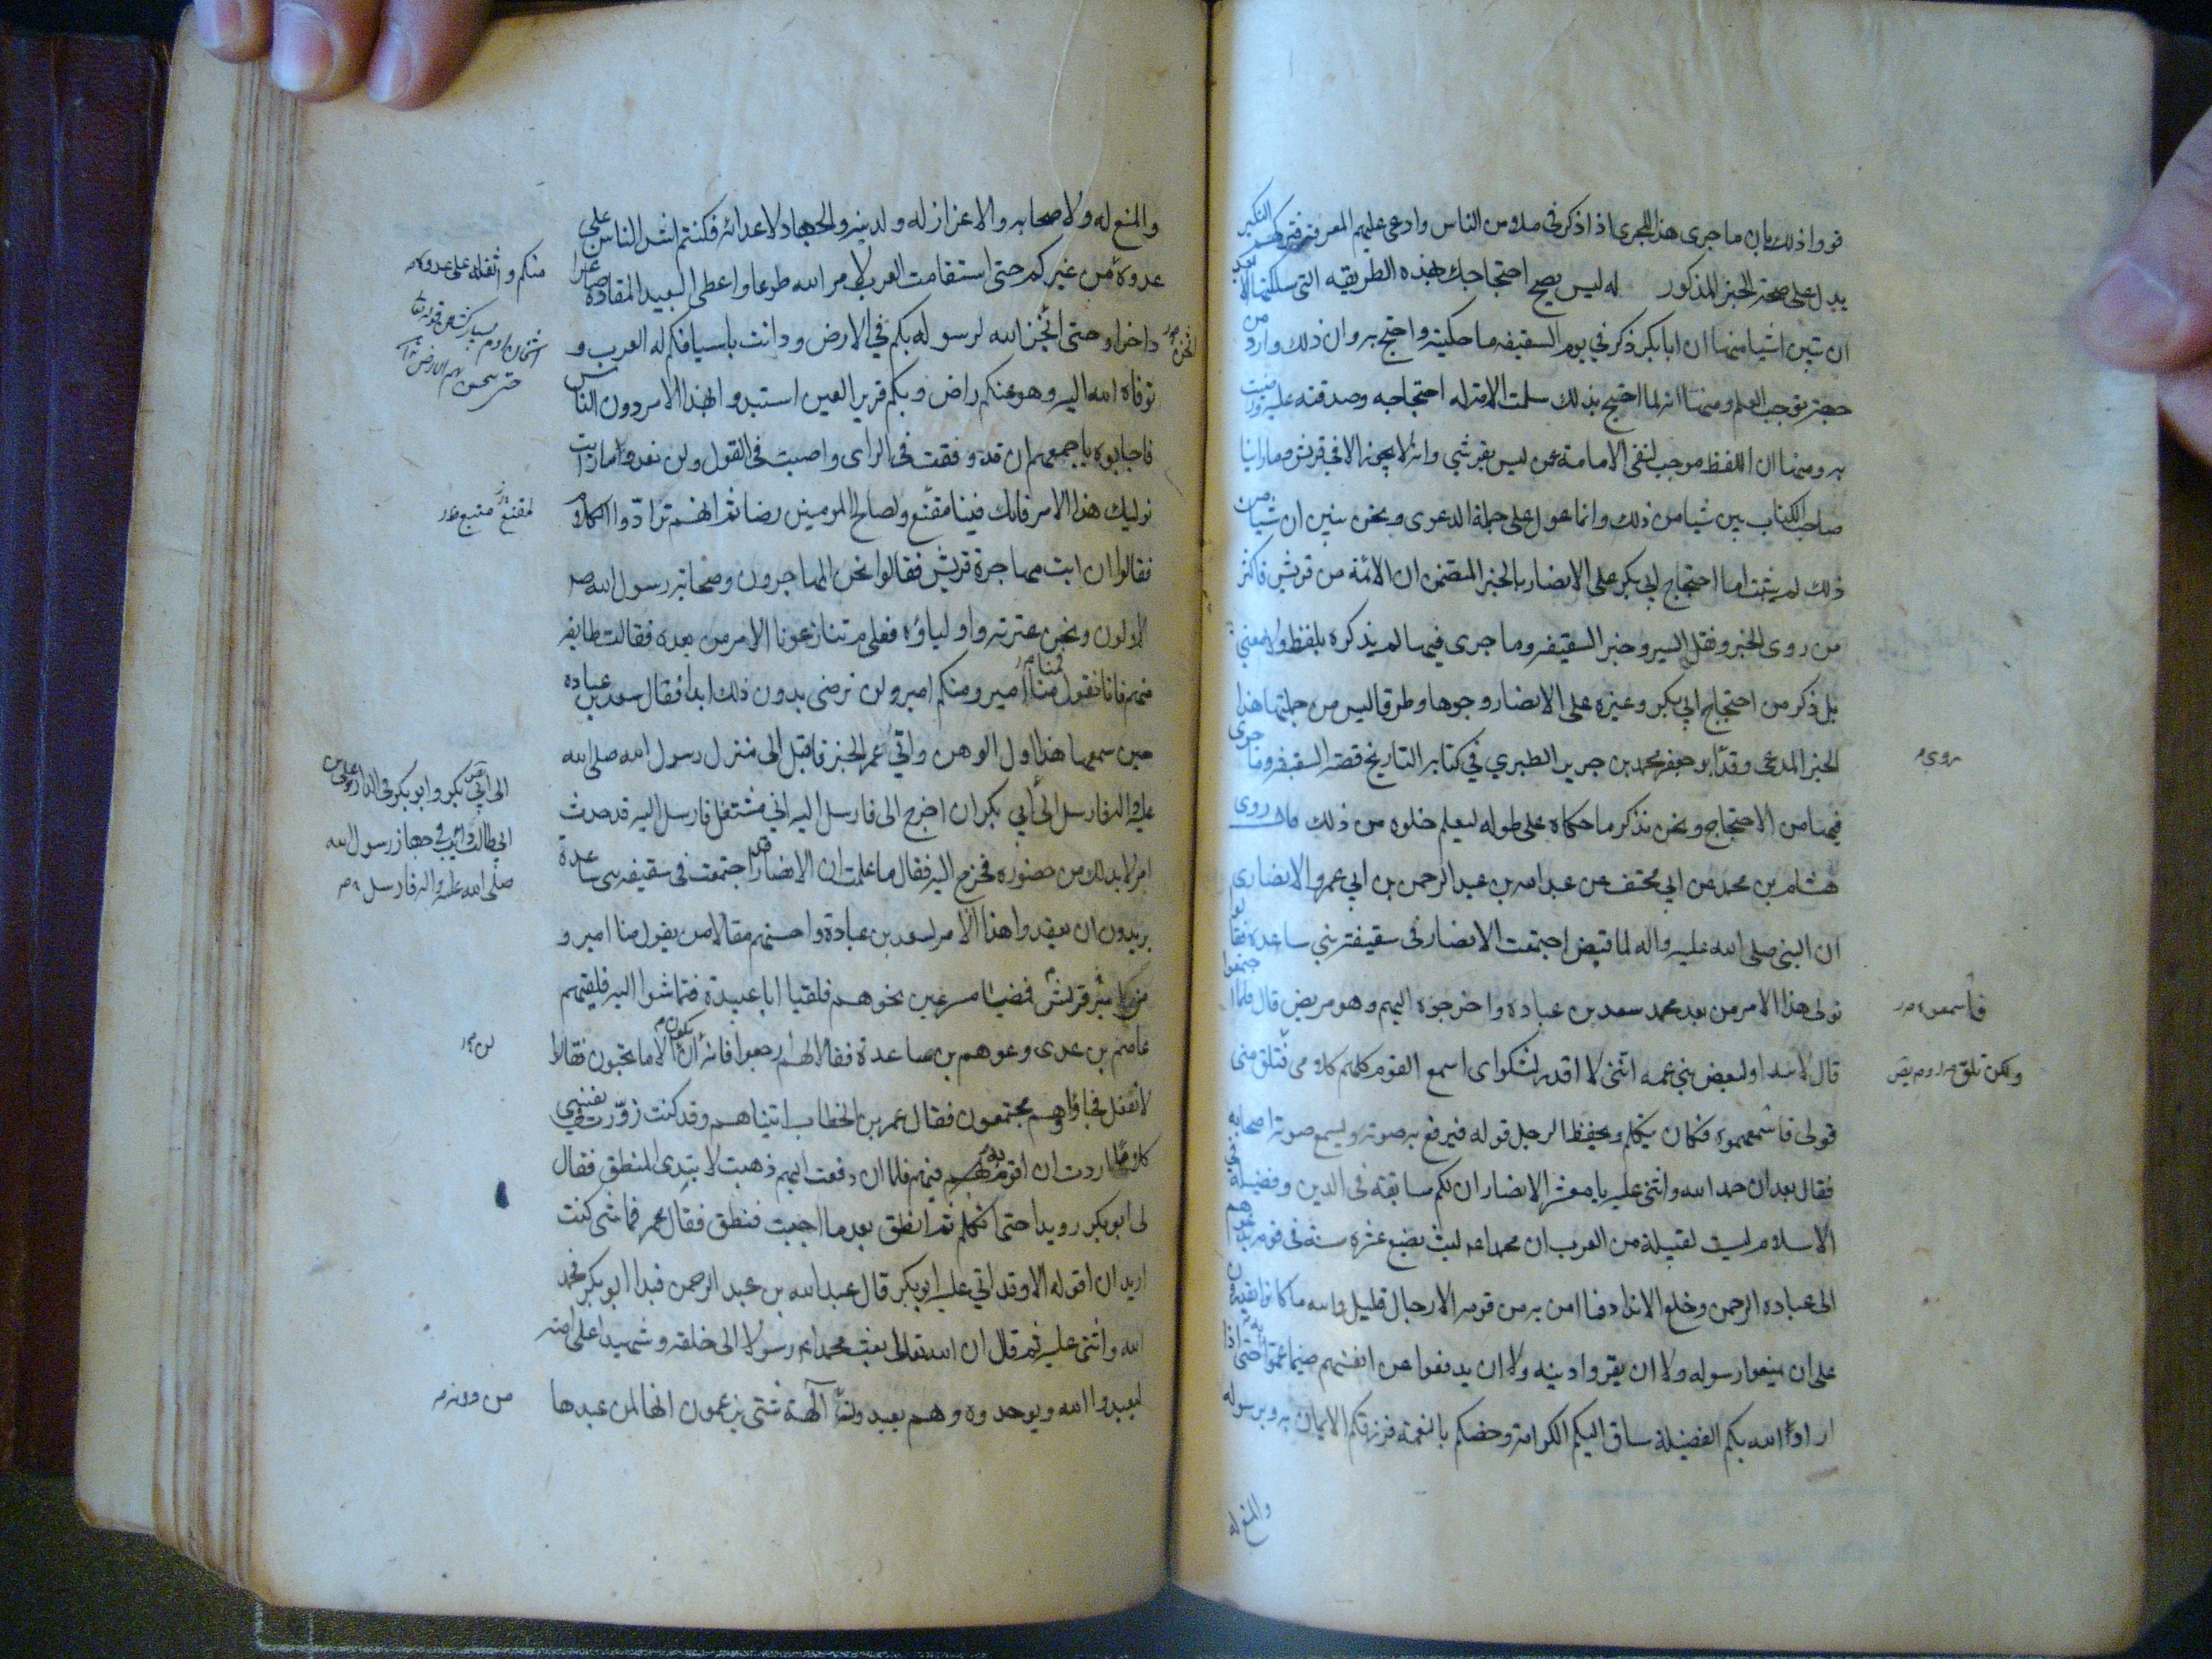 قووا ذلك بان ما جرى هذا المجرى اذا ذكر في ملا من الناس وادعى عليهم المعرفة فتركهم النكير
يدل على صحة الخبر المذكور له ليس يصح احتجاجك بهذه الطريقه التى سلكتها الا بعد
ان تبين اشيا منها ان ابا بكر ذكر في يوم السقيفه ما حكيته واحتج به وان ذلك وارد من
حجة توجب العلم ومنها انه لما احتج بذلك سلمت الامة له احتجاجه وصدقته عليه ورضيت
به ومنها ان اللفظ موجب لنفى الامامة عمن ليس بقرشي وانه لا يجوز الا في قريش وما راينا
صاحب الكتاب بين شيا من ذلك وانما عول على جملة الدعوى ونحن نبين ان شيا من
ذلك لم يثبت اما احتجاج ابي بكر على الانصار بالخبر المتضمن ان الائمة من قريش فاكثر
من روى الخبر ونقل السير وخبر السقيفه وما جرى فيها لم يذكره بلفظ ولا معنى
بل ذكر من احتجاج ابي بكر وغيره على الانصار وجوها وطرقا ليس من جملتها هذا
الخبر المدعى وقد ابو جعفر محمد بن جرير الطبري في كتابه التاريخ قصة السقيفه وما جرى
روى
فيها من الاحتجاج ونحن نذكر ما حكاه على طوله ليعلم خلوه من ذلك قال روى
هشام بن محمد عن ابي مخنف عن عبد الله بن عبد الرحمن بن ابي عمرو الانصارى
ان النبى صلى الله عليه واله لما قبض اجتمعت الانصار فى سقيفة بني ساعده فقالوا
نولى هذا الامر من بعد محمد سعد بن عباده واخرجوه اليهم وهو مريض قال فلما اجتمعوا
فاسمعوه
قال لابنه او لبعض بني عمه انني لا اقدر لشكواى اسمع القوم كلهم كلامى فتلق منى
ولكن تلق
قولى فاسمعهموه فكان يتكلم ويحفظ الرجل قوله فيرفع به صوته ويسمع صوته اصحابه
فقال بعد ان حمد الله واثنى عليه يا معشر الانصار ان لكم سابقة فى الدين وفضيلة في
الاسلام ليست لقبيلة من العرب ان محمدا لبث بضع عشره سنة فى قومه يدعوهم
الى عباده الرحمن وخلع الانداد فما امن به من قومه الا رجال قليل والله ما كانوا يقدرون
على ان يمنعوا رسوله ولا ان يعزوا دينه ولا ان يدفعوا عن انفسهم ضيما عموا به حتى اذا
اراد الله بكم الفضيلة ساق اليكم الكرامة وخصكم بالنعمة فرزقكم الايمان به وبرسوله
والمنع له
والمنع له ولاصحابه والاعزاز له ولدينه والجهاد لاعدائه فكنتم اشد الناس على
عدوه من غيركم حتى استقامت العرب لامر الله طوعا واعطى البعيد المقادة صاغرا
منكم واثقله على عدوه
داخرا وحتى اثخن الله لرسوله بكم في الارض ودانت باسيافكم له العرب و
توفاه الله اليه وهو عنكم راض وبكم قرير العين استبدوا بهذا الامر دون الناس
فاجابوه باجمعهم ان قد وفقت فى الراى واصبت فى القول ولن نعدو ما رايت
نوليك هذا الامر فانك فينا مقنع ولصالح المومنين رضا ثم انهم ترادوا الكلام
لمقنع
فقالوا ان ابت مهاجرة قريش فقالوا نحن المهاجرون وصحابة رسول الله ص
الاولون ونحن عترته واولياؤه فعلى م تنازعونا الامر من بعده فقالت طايفه
منهم فانا نقول منا امير ومنكم امير ولن نرضى بدون ذلك ابدا فقال سعد بن عباده
حين سمعها هذا اول الوهن واتى عمر الخبر فاقبل الى منزل رسول الله صلى الله
عليه واله فارسل الى ابي بكر ان اخرج الى فارسل اليه اني مشتغل فارسل اليه قد حدث
الى ابي بكر وابو بكر فى الدار وعلى بن
ابى طالب في جهاز رسول الله
صلى الله عليه واله فارسل
امر لا بد لك من حضوره فخرج اليه فقال ما علمت ان الانصار قد اجتمعت فى سقيفه بنى ساعدة
يريدون ان يعقدوا هذا الامر لسعد بن عبادة واحسنهم مقالا من يقول منا امير و
من قريش فمضيا مسرعين نحوهم فلقيا ابا عبيدة فتماشوا اليه فلقيهم
عاصم بن عدى وعويم بن ساعدة فقالا لهم ارجعوا فانه لن يكون الا ما تحبون فقالا
لا نفعل فجاؤا وهم مجتمعون فقال عمر بن الخطاب اتيناهم وقد كنت زورت فى نفسى
كلاما اردت ان اقوم به فيهم فلما ان دفعت اليهم ذهبت لابتدى المنطق فقال
لى ابو بكر رويدا حتى اتكلم ثم انطق بعد ما احببت فنطق فقال عمر فما شى كنت
اريد ان اقوله الا وقد اتي عليه ابو بكر قال عبد الله بن عبد الرحمن فبدا ابو بكر فحمد
الله واثنى عليه ثم قال ان الله تعالى بعث محمدا رسولا الى خلقه وشهيدا على امته
ليعبدوا الله ويوحدوه وهم يعبدون آلهة شتى يزعمون انها لمن عبدها
من دونه